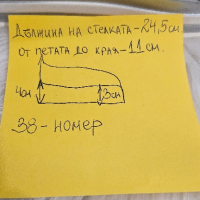 Дължина на стелката - 24,5см
от петата до края - 11 см.
4см
3см
38 - номер